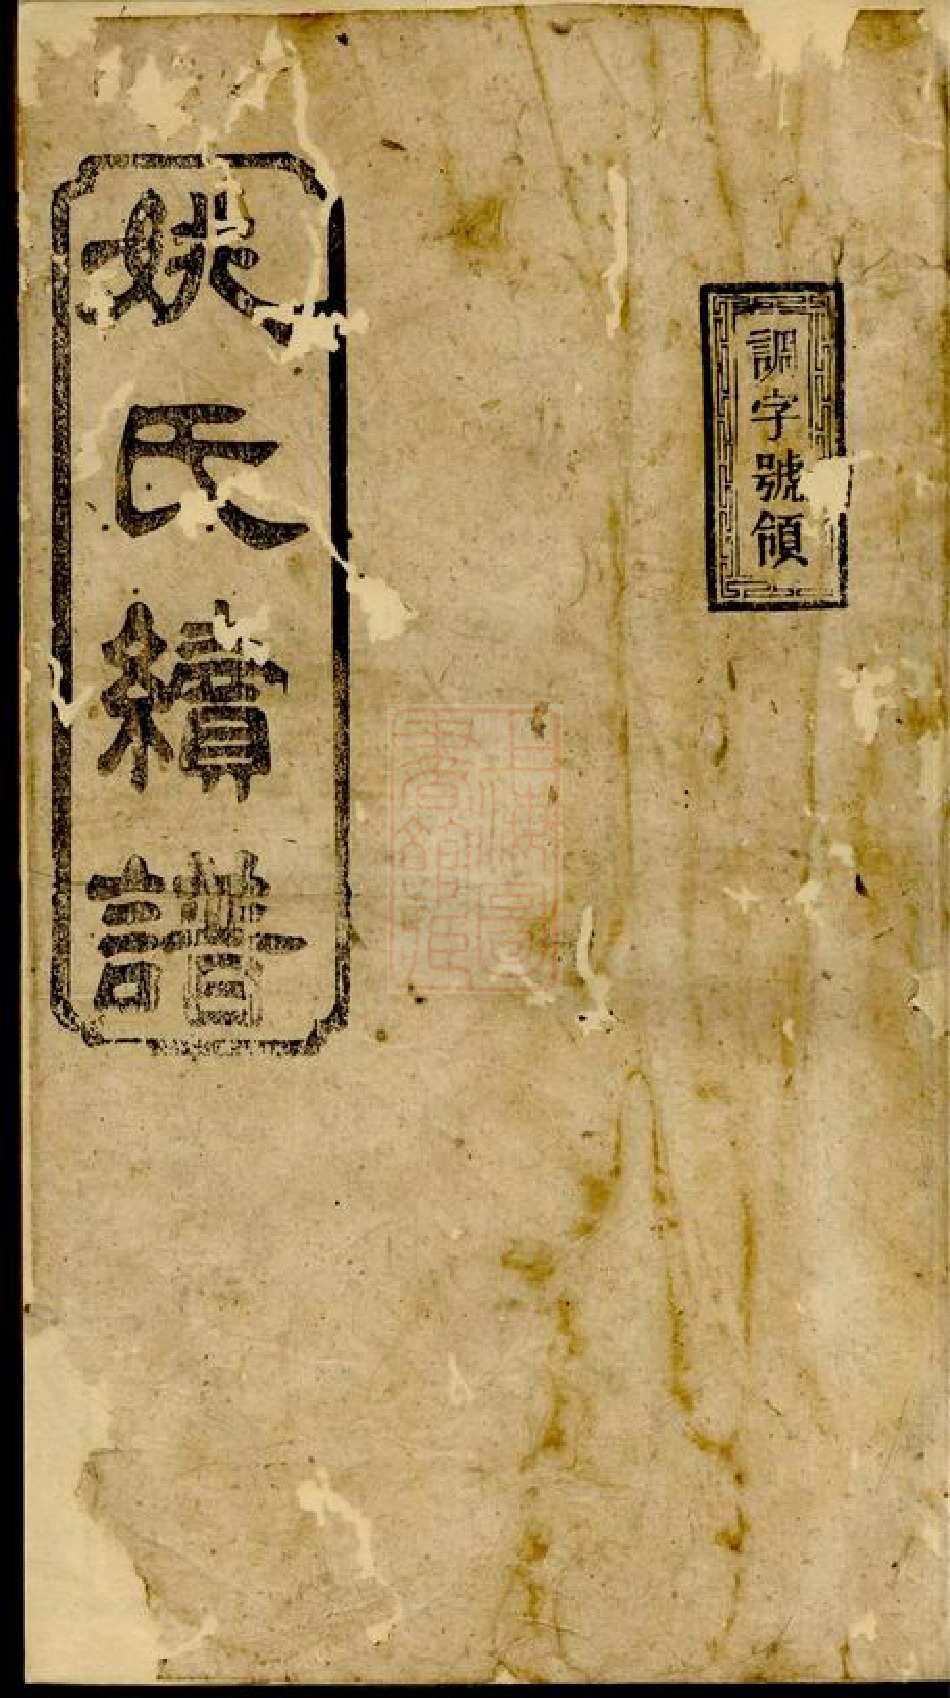 調字號領
姚氏續譜
上海圖書館藏